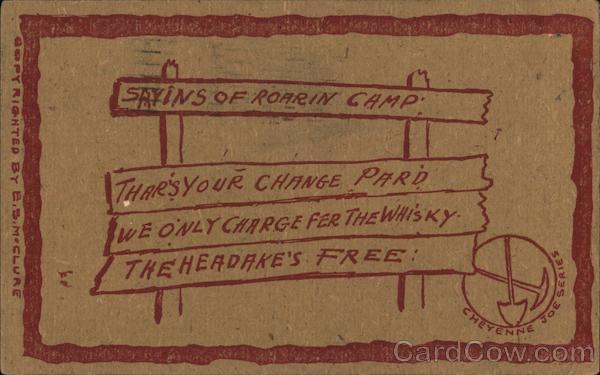 SAYINS OF ROARIN CAMP.
THAR'S YOUR CHANGE PARD
WE ONLY CHARGE FER THE WHISKY.
THE HEADAKE'S FREE:
CHEYENNE JOE SERIES
COPYRIGHTED BY E.S. McCLURE
CardCow.com